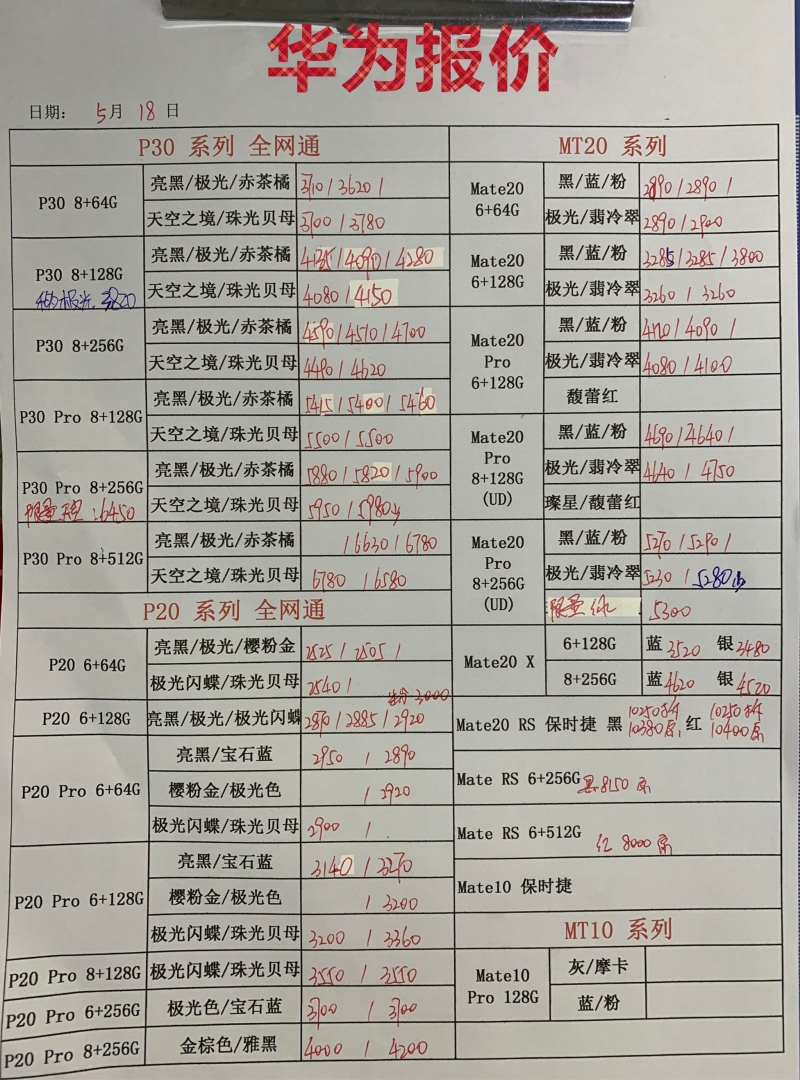 华为报价
日期: 5月 18日
P30 系列 全网通
P30 8+64G
亮黑/极光/赤茶橘 3710/3620/
天空之境/珠光贝母 3700/3780
P30 8+128G
极光 3820
亮黑/极光/赤茶橘 4135/4090/4280
天空之境/珠光贝母 4080/4150
P30 8+256G
亮黑/极光/赤茶橘 4590/4570/4700
天空之境/珠光贝母 4490/4620
P30 Pro 8+128G
亮黑/极光/赤茶橘 5415/5400/5460
天空之境/珠光贝母 5500/5500
P30 Pro 8+256G
限量天空:6450
亮黑/极光/赤茶橘 5880/5820/5900
天空之境/珠光贝母 5950/5980
P30 Pro 8+512G
亮黑/极光/赤茶橘 /6630/6780
天空之境/珠光贝母 6780/6580
P20 系列 全网通
P20 6+64G
亮黑/极光/樱粉金 2525/2505/
极光闪蝶/珠光贝母 2540/
P20 6+128G
亮黑/极光/极光闪蝶 2870/2885/2920
3000
P20 Pro 6+64G
亮黑/宝石蓝 2950/2890
樱粉金/极光色 /2920
极光闪蝶/珠光贝母 2900/
P20 Pro 6+128G
亮黑/宝石蓝 3140/3270
樱粉金/极光色 /3200
极光闪蝶/珠光贝母 3200/3360
P20 Pro 8+128G
极光闪蝶/珠光贝母 3550/3550
P20 Pro 6+256G
极光色/宝石蓝 3700/3700
P20 Pro 8+256G
金棕色/雅黑 4000/4200
MT20 系列
Mate20
6+64G
黑/蓝/粉 2890/2890/
极光/翡冷翠 2890/2900
Mate20
6+128G
黑/蓝/粉 3285/3285/3800
极光/翡冷翠 3260/3260
Mate20
Pro
6+128G
黑/蓝/粉 4120/4090/
极光/翡冷翠 4080/4100
馥蕾红
Mate20
Pro
8+128G
(UD)
黑/蓝/粉 4690/4640/
极光/翡冷翠 4640/4750
璨星/馥蕾红
Mate20
Pro
8+256G
(UD)
黑/蓝/粉 5270/5290/
极光/翡冷翠 5230/5280
限量红 5300
Mate20 X
6+128G 蓝 3520 银 3480
8+256G 蓝 4620 银 4520
Mate20 RS 保时捷 黑 10250 10380 红 10250 10400
Mate RS 6+256G 黑 8150
Mate RS 6+512G 红 8000
Mate10 保时捷
MT10 系列
Mate10
Pro 128G
灰/摩卡
蓝/粉